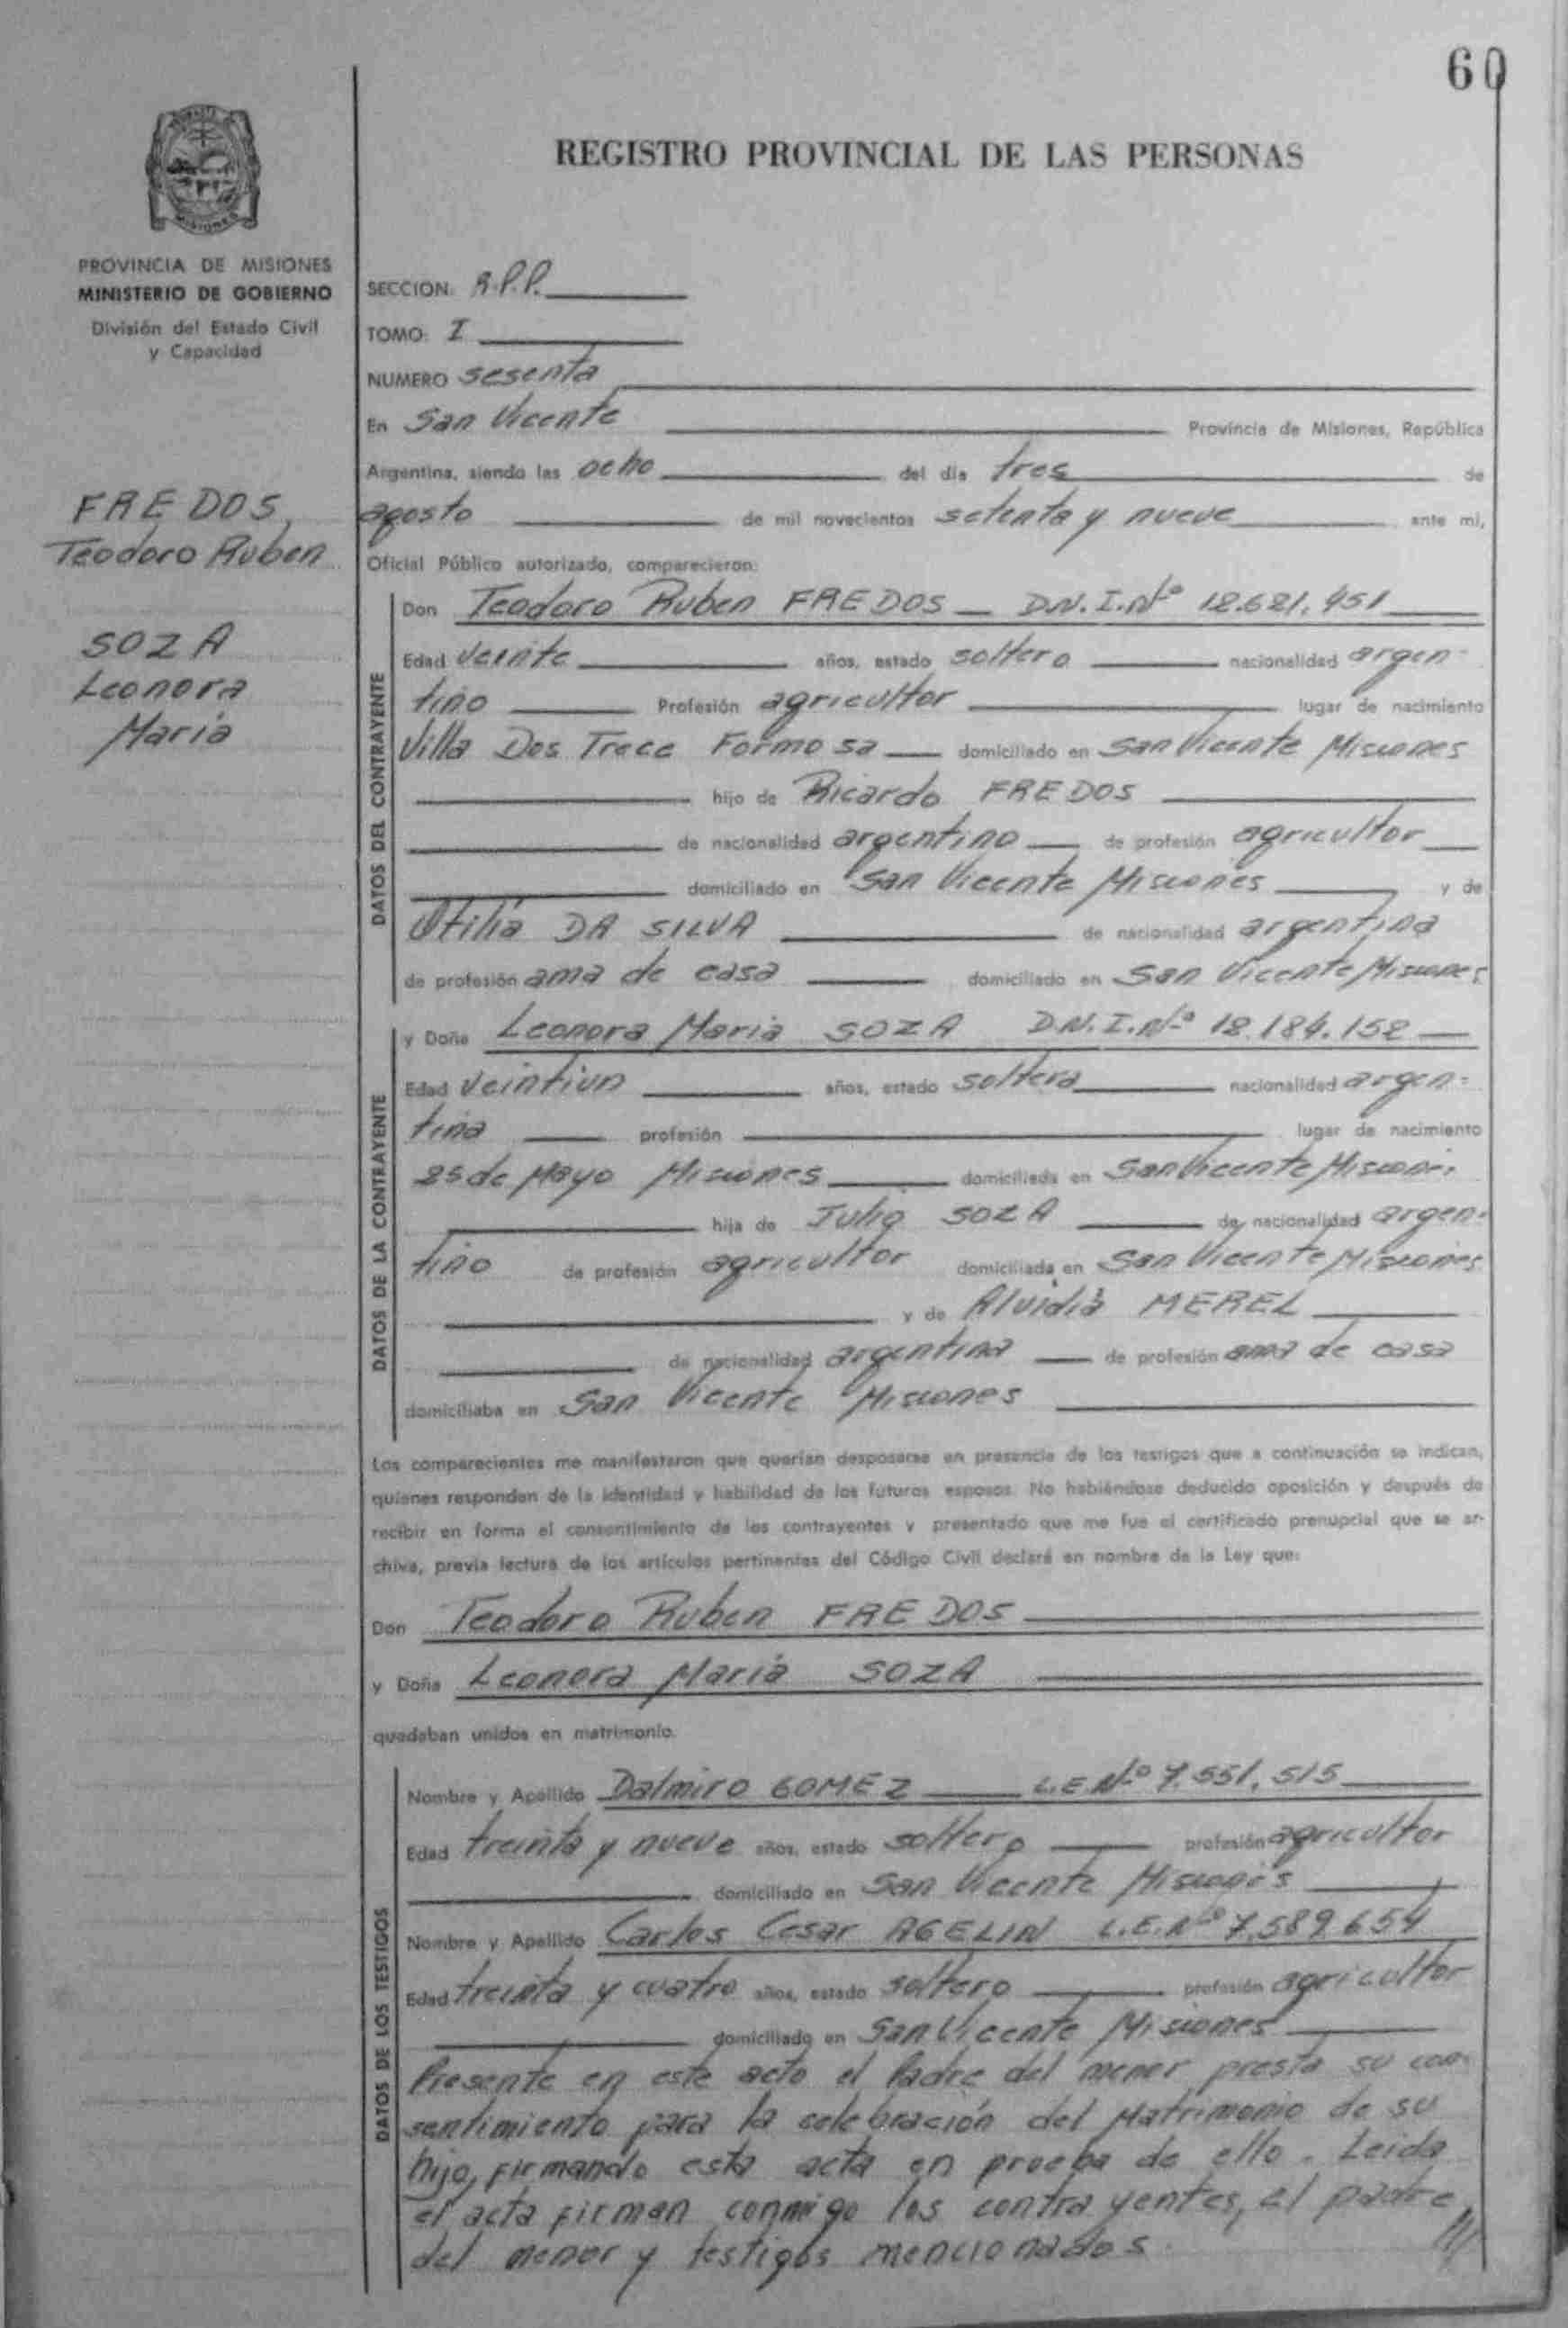 60
REGISTRO PROVINCIAL DE LAS PERSONAS
MISIONES
PROVINCIA DE MISIONES
MINISTERIO DE GOBIERNO
División del Estado Civil
y Capacidad
FREDOS,
Teodoro Ruben
SOZA
Leonora
María
SECCION: R.P.P.
TOMO: I
NUMERO sesenta
En San Vicente Provincia de Misiones, República
Argentina, siendo las ocho del día tres de
agosto de mil novecientos setenta y nueve ante mí,
Oficial Público autorizado, comparecieron:
DATOS DEL CONTRAYENTE
Don Teodoro Ruben FREDOS D.N.I.Nº 12.621.451
Edad veinte años, estado soltero nacionalidad argen-
tino Profesión agricultor lugar de nacimiento
Villa Dos Trece Formosa domiciliado en San Vicente Misiones
hijo de Ricardo FREDOS
de nacionalidad argentino de profesión agricultor
domiciliado en San Vicente Misiones y de
Otilia DA SILVA de nacionalidad argentina
de profesión ama de casa domiciliado en San Vicente Misiones
DATOS DE LA CONTRAYENTE
y Doña Leonora María SOZA D.N.I.Nº 12.184.152
Edad veintiun años, estado soltera nacionalidad argen-
tina profesión lugar de nacimiento
25 de Mayo Misiones domiciliada en San Vicente Misiones
hija de Julio SOZA de nacionalidad argen-
tino de profesión agricultor domiciliada en San Vicente Misiones
y de Alvidia MEREL
de nacionalidad argentina de profesión ama de casa
domiciliaba en San Vicente Misiones
Los comparecientes me manifestaron que querían desposarse en presencia de los testigos que a continuación se indican,
quienes responden de la identidad y habilidad de los futuros esposos. No habiéndose deducido oposición y después de
recibir en forma el consentimiento de los contrayentes y presentado que me fue el certificado prenupcial que se ar-
chiva, previa lectura de los artículos pertinentes del Código Civil declaré en nombre de la Ley que:
Don Teodoro Ruben FREDOS
y Doña Leonora María SOZA
quedaban unidos en matrimonio.
DATOS DE LOS TESTIGOS
Nombre y Apellido Dalmiro GOMEZ L.E.Nº 7.551.515
Edad treinta y nueve años, estado soltero profesión agricultor
domiciliado en San Vicente Misiones
Nombre y Apellido Carlos Cesar AGELIN L.E.Nº 7.589.654
Edad treinta y cuatro años, estado soltero profesión agricultor
domiciliado en San Vicente Misiones
Presente en este acto el Padre del menor presta su con-
sentimiento para la celebración del Matrimonio de su
hijo, firmando esta acta en prueba de ello. Leida
el acta firman conmigo los contrayentes, el padre
del menor y testigos mencionados.